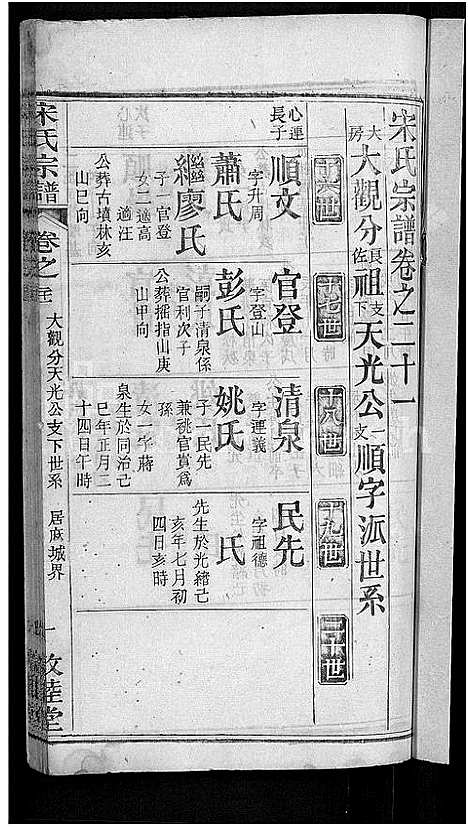 宋氏宗譜卷之二十一
大房大觀分長佐祖支下天光公一支順字派世系
十六世
十七世
十八世
十九世
二十世
心連長子
順文
字升周
蕭氏
繼廖氏
子一官登
女二適高
適汪
公葬古墳林亥
山巳向
官登
字登山
彭氏
嗣子清泉係
官利次子
公葬搖指山庚
山甲向
清泉
字連義
姚氏
子一民先
兼祧官賓為
孫
女一字蔣
泉生於同治己
巳年正月二
十四日午時
民先
字祖德
氏
先生於光緒己
亥年七月初
四日亥時
宋氏宗譜
卷之
大觀分天光公支下世系
居麻城界
一
敦睦堂